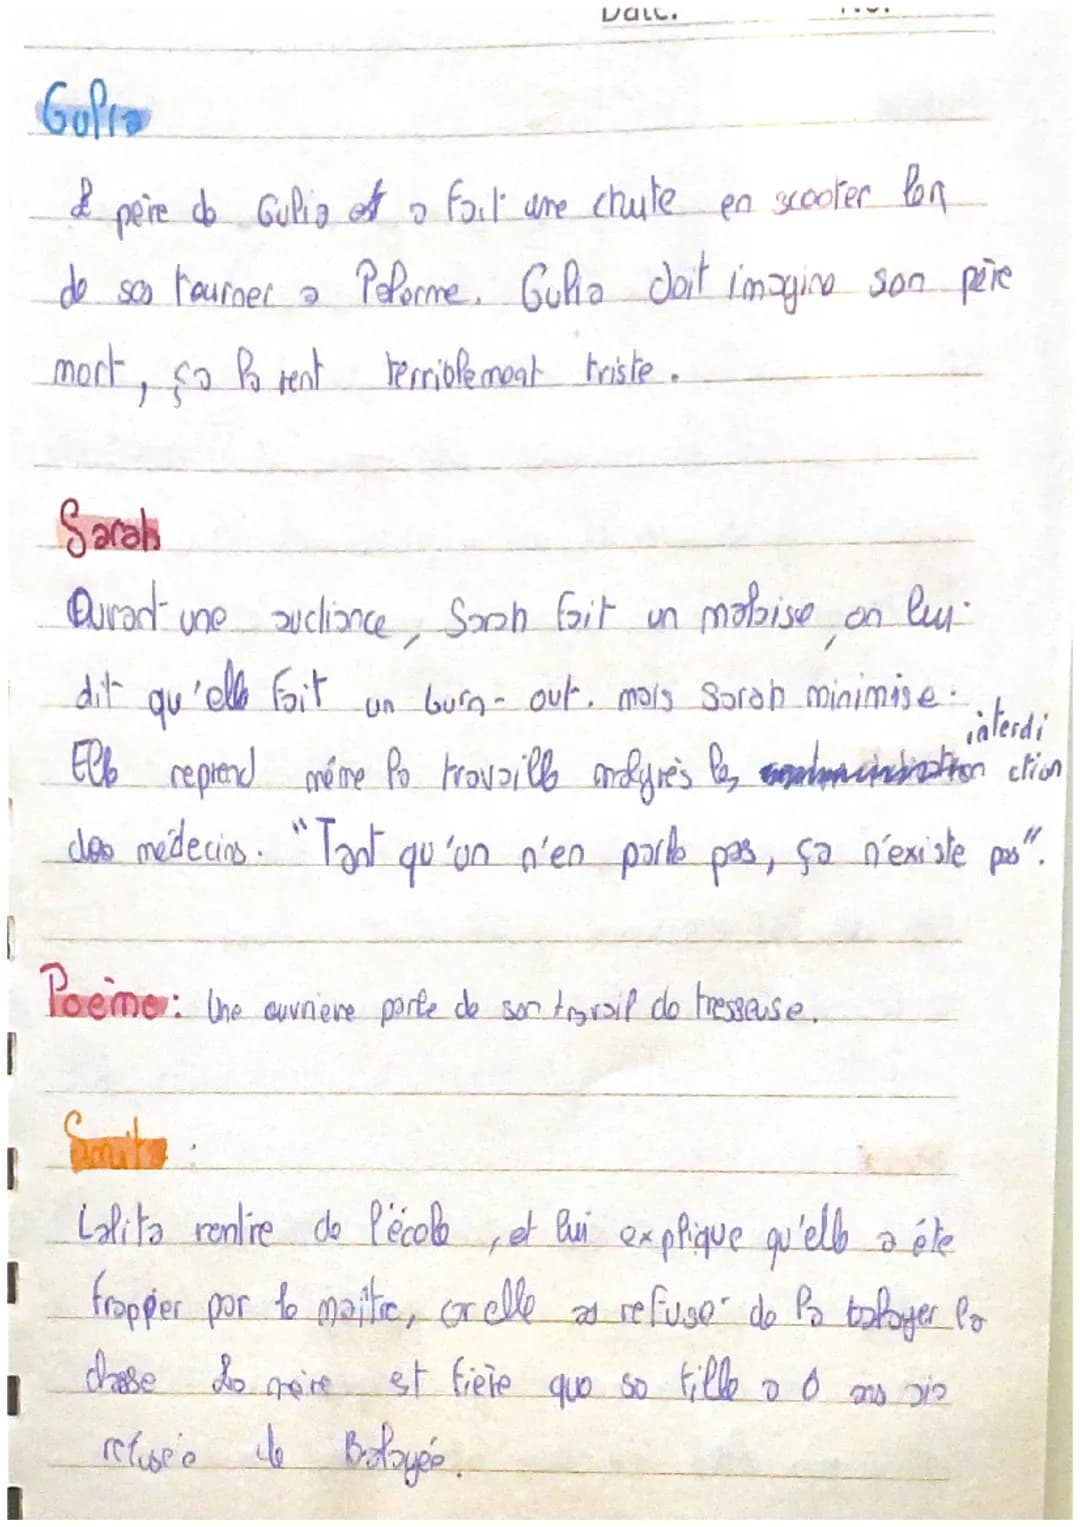 Date. No.
Gulia
Le père de Gulia et a fait une chute en scooter lon
de ses tourner a Palerme. Gulia doit imagine son père
mort, ça la rent terriblement triste.
Sarah
Durant une audiance, Sarah fait un malaise, on lui
dit qu'elle fait un burn-out. mais Sarah minimise.
interdi
Elle reprend même la travaille malgrès les ction
des médecins. "Tant qu'on n'en parle pas, ça n'existe pas".
Poème: Une ouvriere parle de son travail de tresseuse.
Smita :
Lalita rentre de l'école, et lui explique qu'elle a été
frapper par le maître, car elle as refuser de la balayer la
classe La mère est fière que sa fille a 6 ans aia
refusée de Balayée.